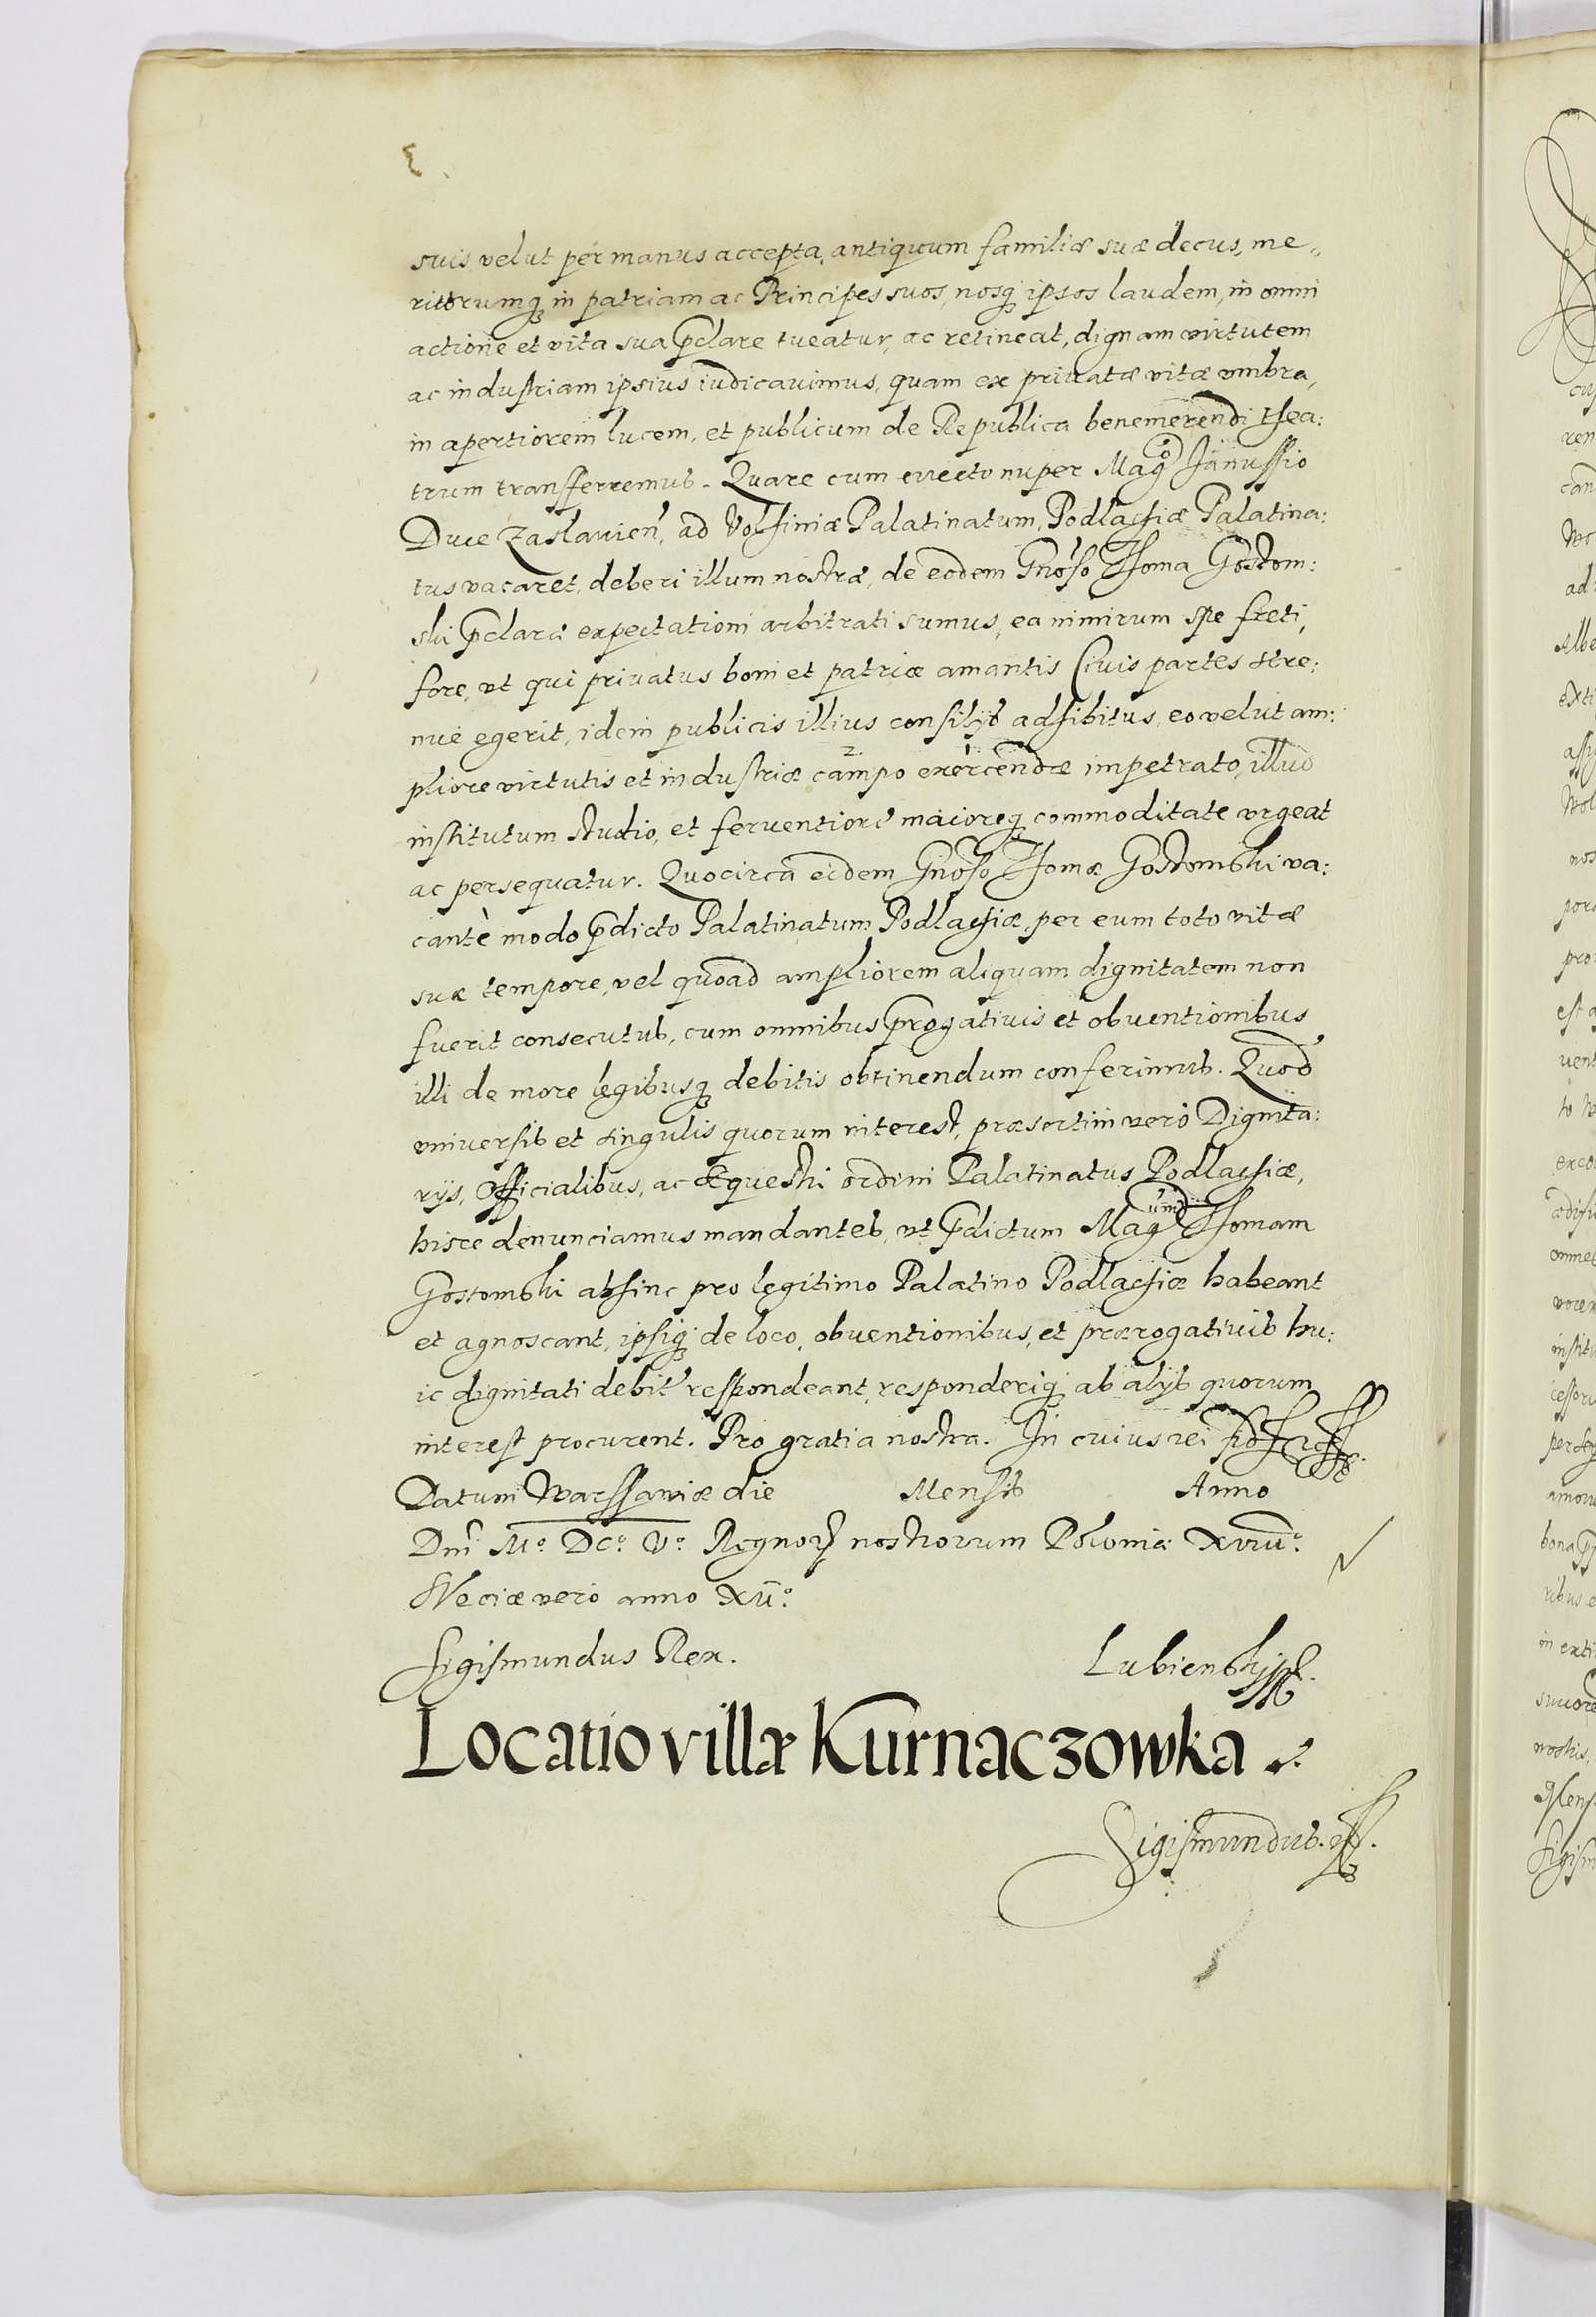 suis, velut per manus accepta, antiquum familiæ suæ decus, me„
ritorumq; in patriam ac Principes suos, nosq; ipsos laudem, in omni
actione et vita sua p̃clare tueatur, ac retineat, dignam virtutem
ac industriam ipsius iudicauimus, quam ex priuatæ vitæ vmbra,
in apertiorem lucem, et publicum de Republica benemerendi thea:
trum transferremus. Quare cum euecto nuper Mag^co Janussio
Duce Zaslauien̄, ad Volhiniæ Palatinatum, Podlachiæ Palatina:
tus vacaret, deberi illum nostræ, de eodem Gnōso Thoma Gostom:
ski p̃claræ expectationi arbitrati sumus, ea nimirum spe freti,
fore, vt qui priuatus boni et patriæ amantis Ciuis partes stre:
nuè egerit, idem publicis illius consilijs adhibitus, eo velut am:
pliore virtutis et industriæ campo exercendæ impetrato, illud
institutum studio, et feruentiore maioreq; commoditate vrgeat
ac persequatur. Quocirca eidem Gnōso Thomæ Gostomski va:
cantè modo p̃dicto Palatinatum Podlachiæ, per eum toto vitæ
suæ tempore, vel quoad ampliorem aliquam dignitatem non
fuerit consecutus, cum omnibus p̃rogatiuis et obuentionibus
illi de more legibusq; debitis obtinendum conferimus. Quod
vniuersis et singulis quorum interest, præsertim verò Dignita:
rijs, Officialibus, ac Equestri ordini Palatinatus Podlachiæ,
hisce denunciamus mandantes, vt p̃dictum Mag^cum Thomam
Gostomski abhinc pro legitimo Palatino Podlachiæ habeant
et agnoscant, ipsiq; de loco, obuentionibus, et prærogatiuis hu:
ic dignitati debit' respondeant, responderiq; ab alijs quorum
interest procurent. Pro gratia nostra. In cuius rei fid
Datum Warssawiæ die Mensis Anno
Dn̄i M° DC° V° Regnoꝝ nostrorum Poloniæ XVIII°
Sveciæ vero anno XII°
Sigismundus Rex. Lubienski
Locatio villæ Kurnaczowka
Sigismundus.